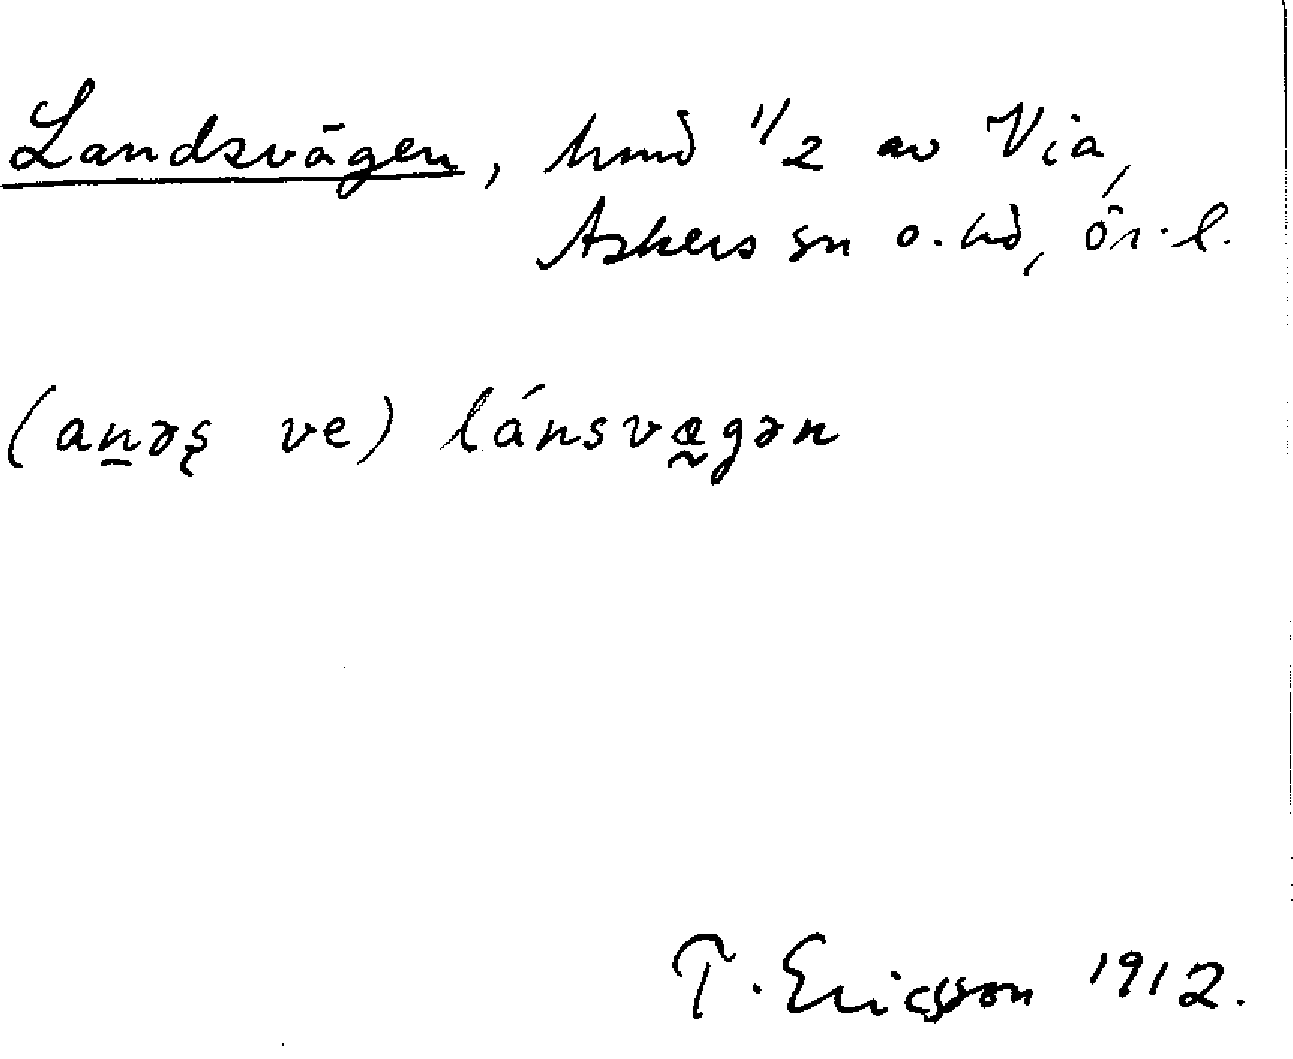 Landsvägen, hmd 1/2 av Via,
Askers sn o. hd, ör. l.
(an̲əş ve) lánsvæ̰gən
T. Ericsson 1912.